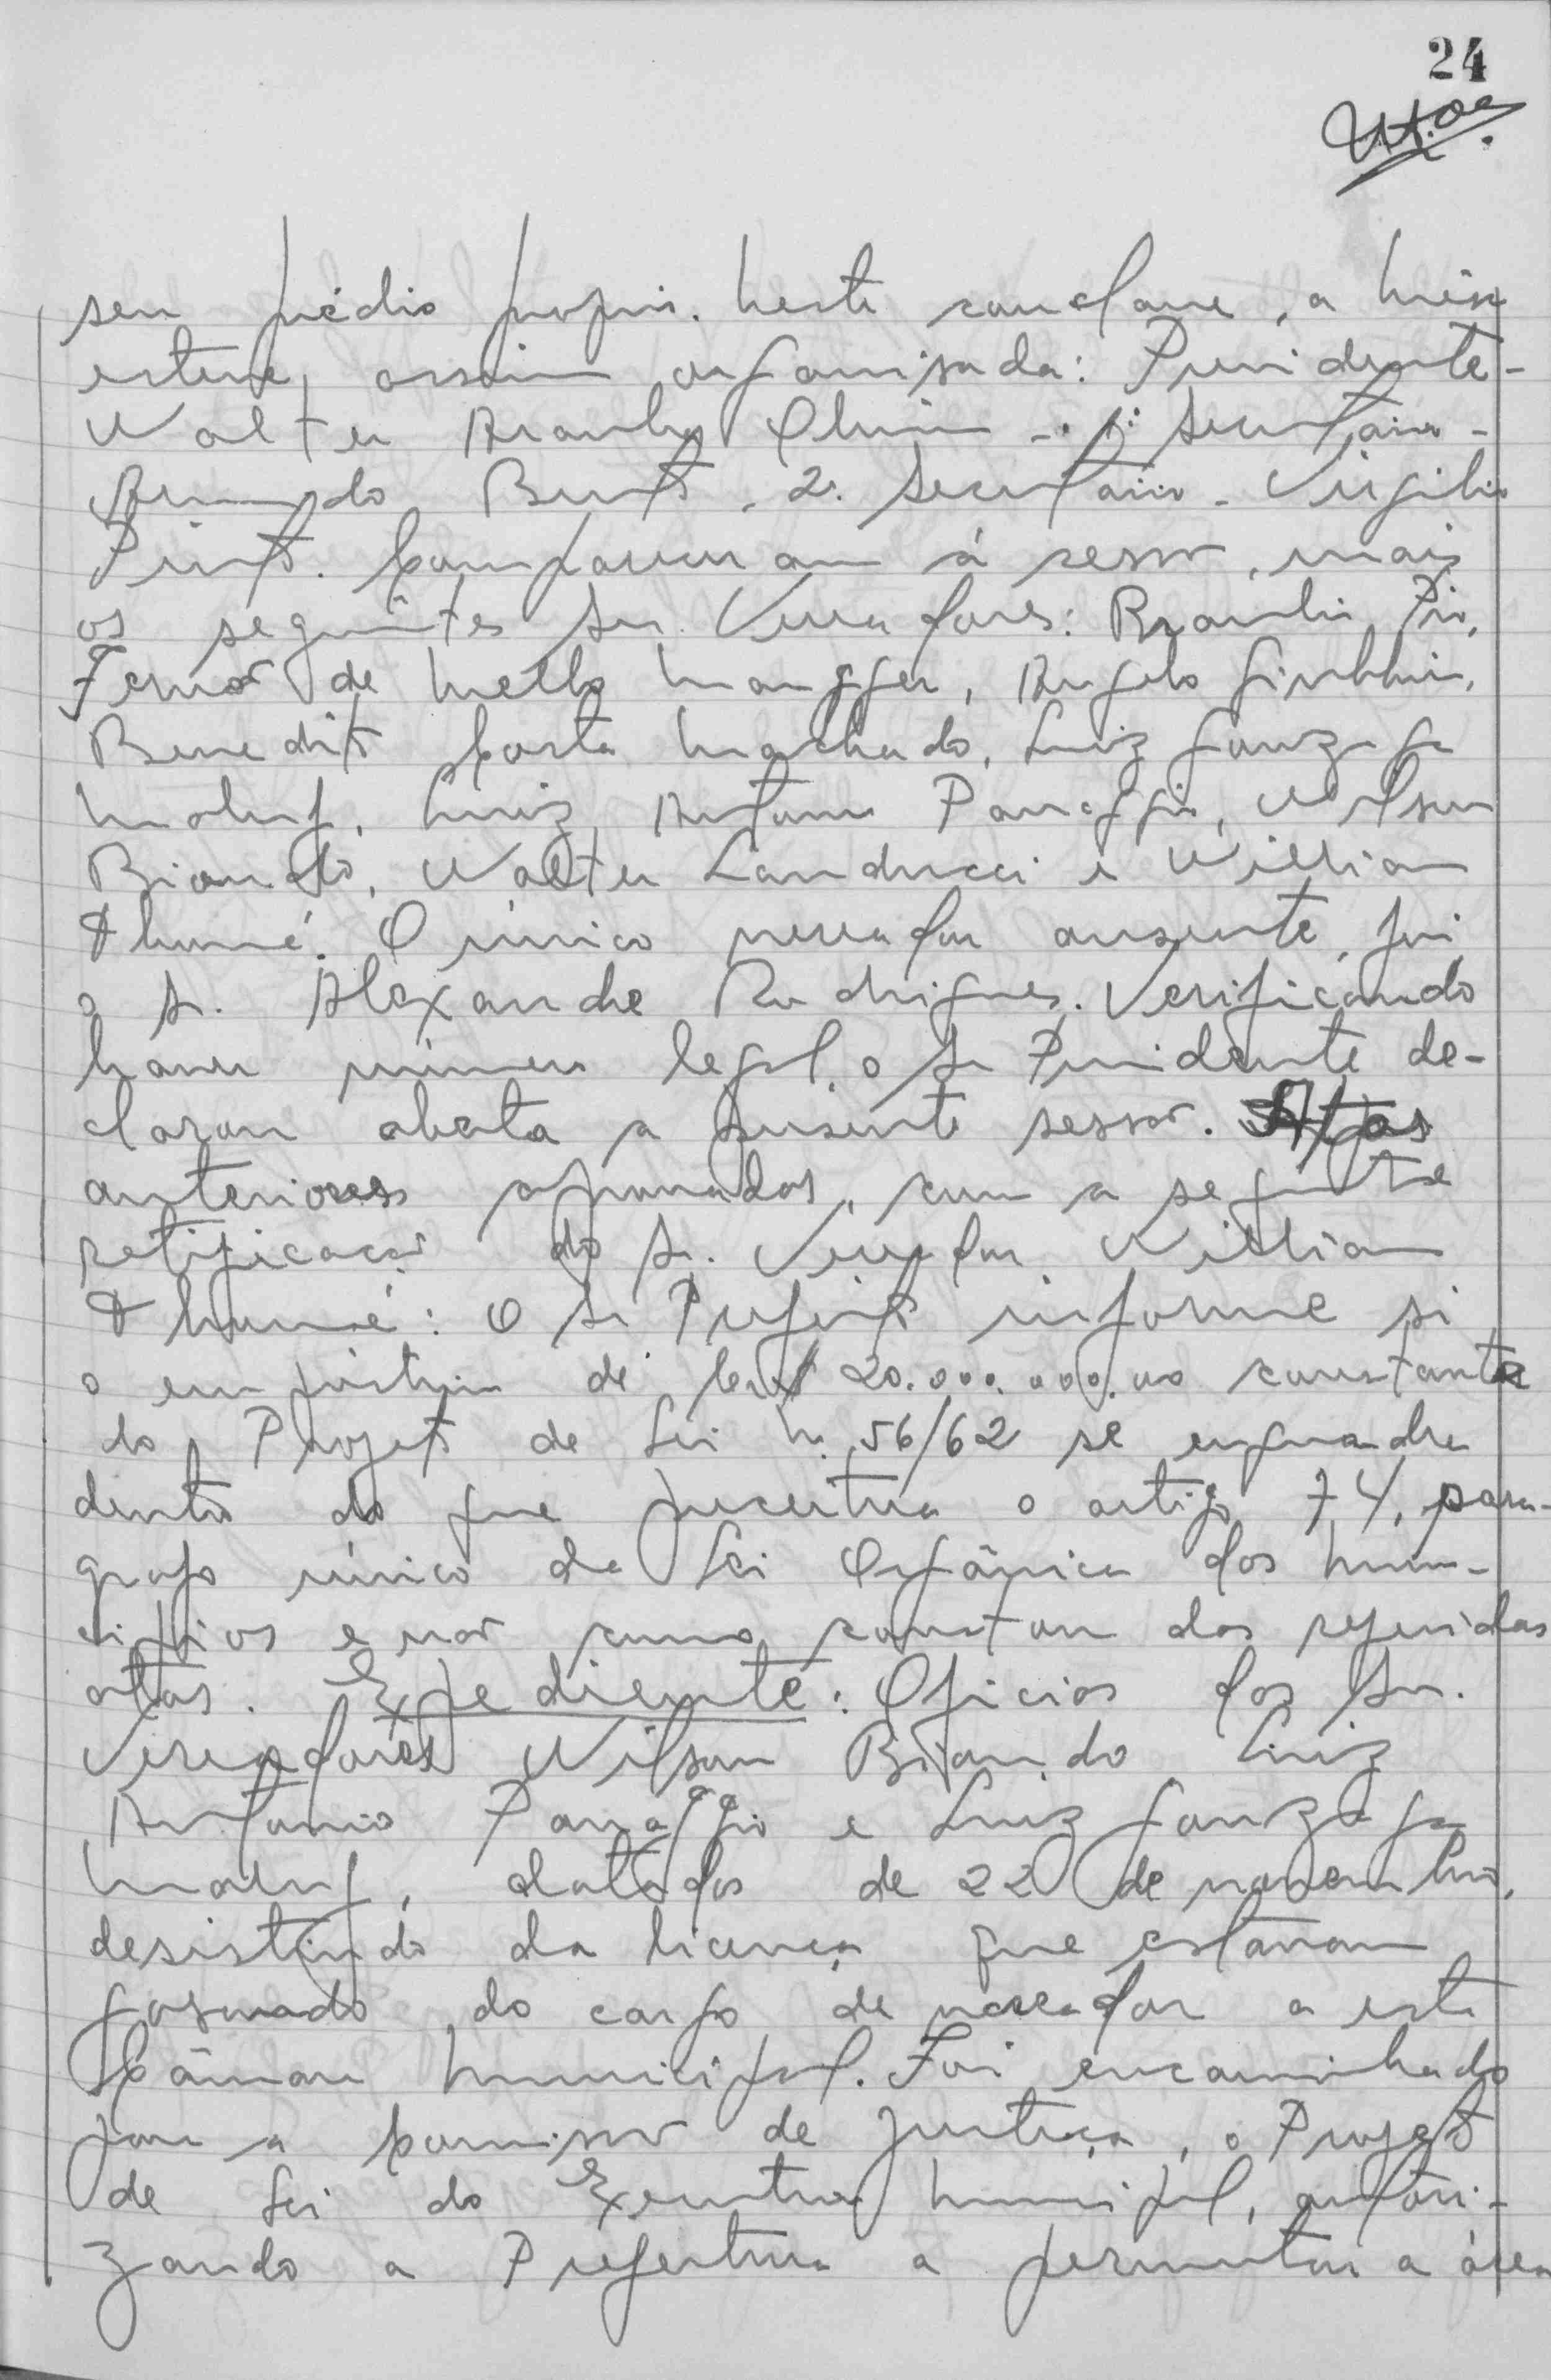 24
seu prédio proprio. Neste conclave, a mêsa
esteve assim organisada: Presidente -
Walter Aranha Oliveira - 1º Secretario -
Armando Bento - 2º Secretario - Virgilio
Pinto. Compareceram á sessão, mais
os seguintes Srs. Vereadores: Braulio Pio,
de Mello Mangger, Angelo
Benedito Costa Machado, Luiz Gonzaga
Maluf, Luiz Antonio Panaggio, Wilson
Biondo, Walter Landucci e Willian
Thomé. O único vereador ausente, foi
o Sr. Alexandre Rodrigues. Verificando
haver número legal, o Sr Presidente de-
clarou aberta a presente sessão. Atas
anteriores aprovadas, com a seguinte
retificação do Sr. Vereador Willian
Thomé: O Sr Prefeito informe si
o empréstimo de Cr$ 20.000.000,00 constante
do Projeto de Lei n. 56/62 se enquadra
dentro do que preceitua o artigo 74, para-
grafo único da Lei Orgânica dos Muni-
cipios e não como constou das referidas
atas. Expediente: Oficios dos Srs.
Vereadores Wilson Biondo Luiz
Antonio Panaggio e Luiz Gonzaga
Maluf, datados de 22 de novembro,
desistindo da licença que estavam
gosando do cargo de vereador a esta
Câmara Municipal. Foi encaminhado
para a Comissão de Justiça, o Projeto
de Lei do Executivo Municipal, autori-
zando a Prefeitura a permutar a área